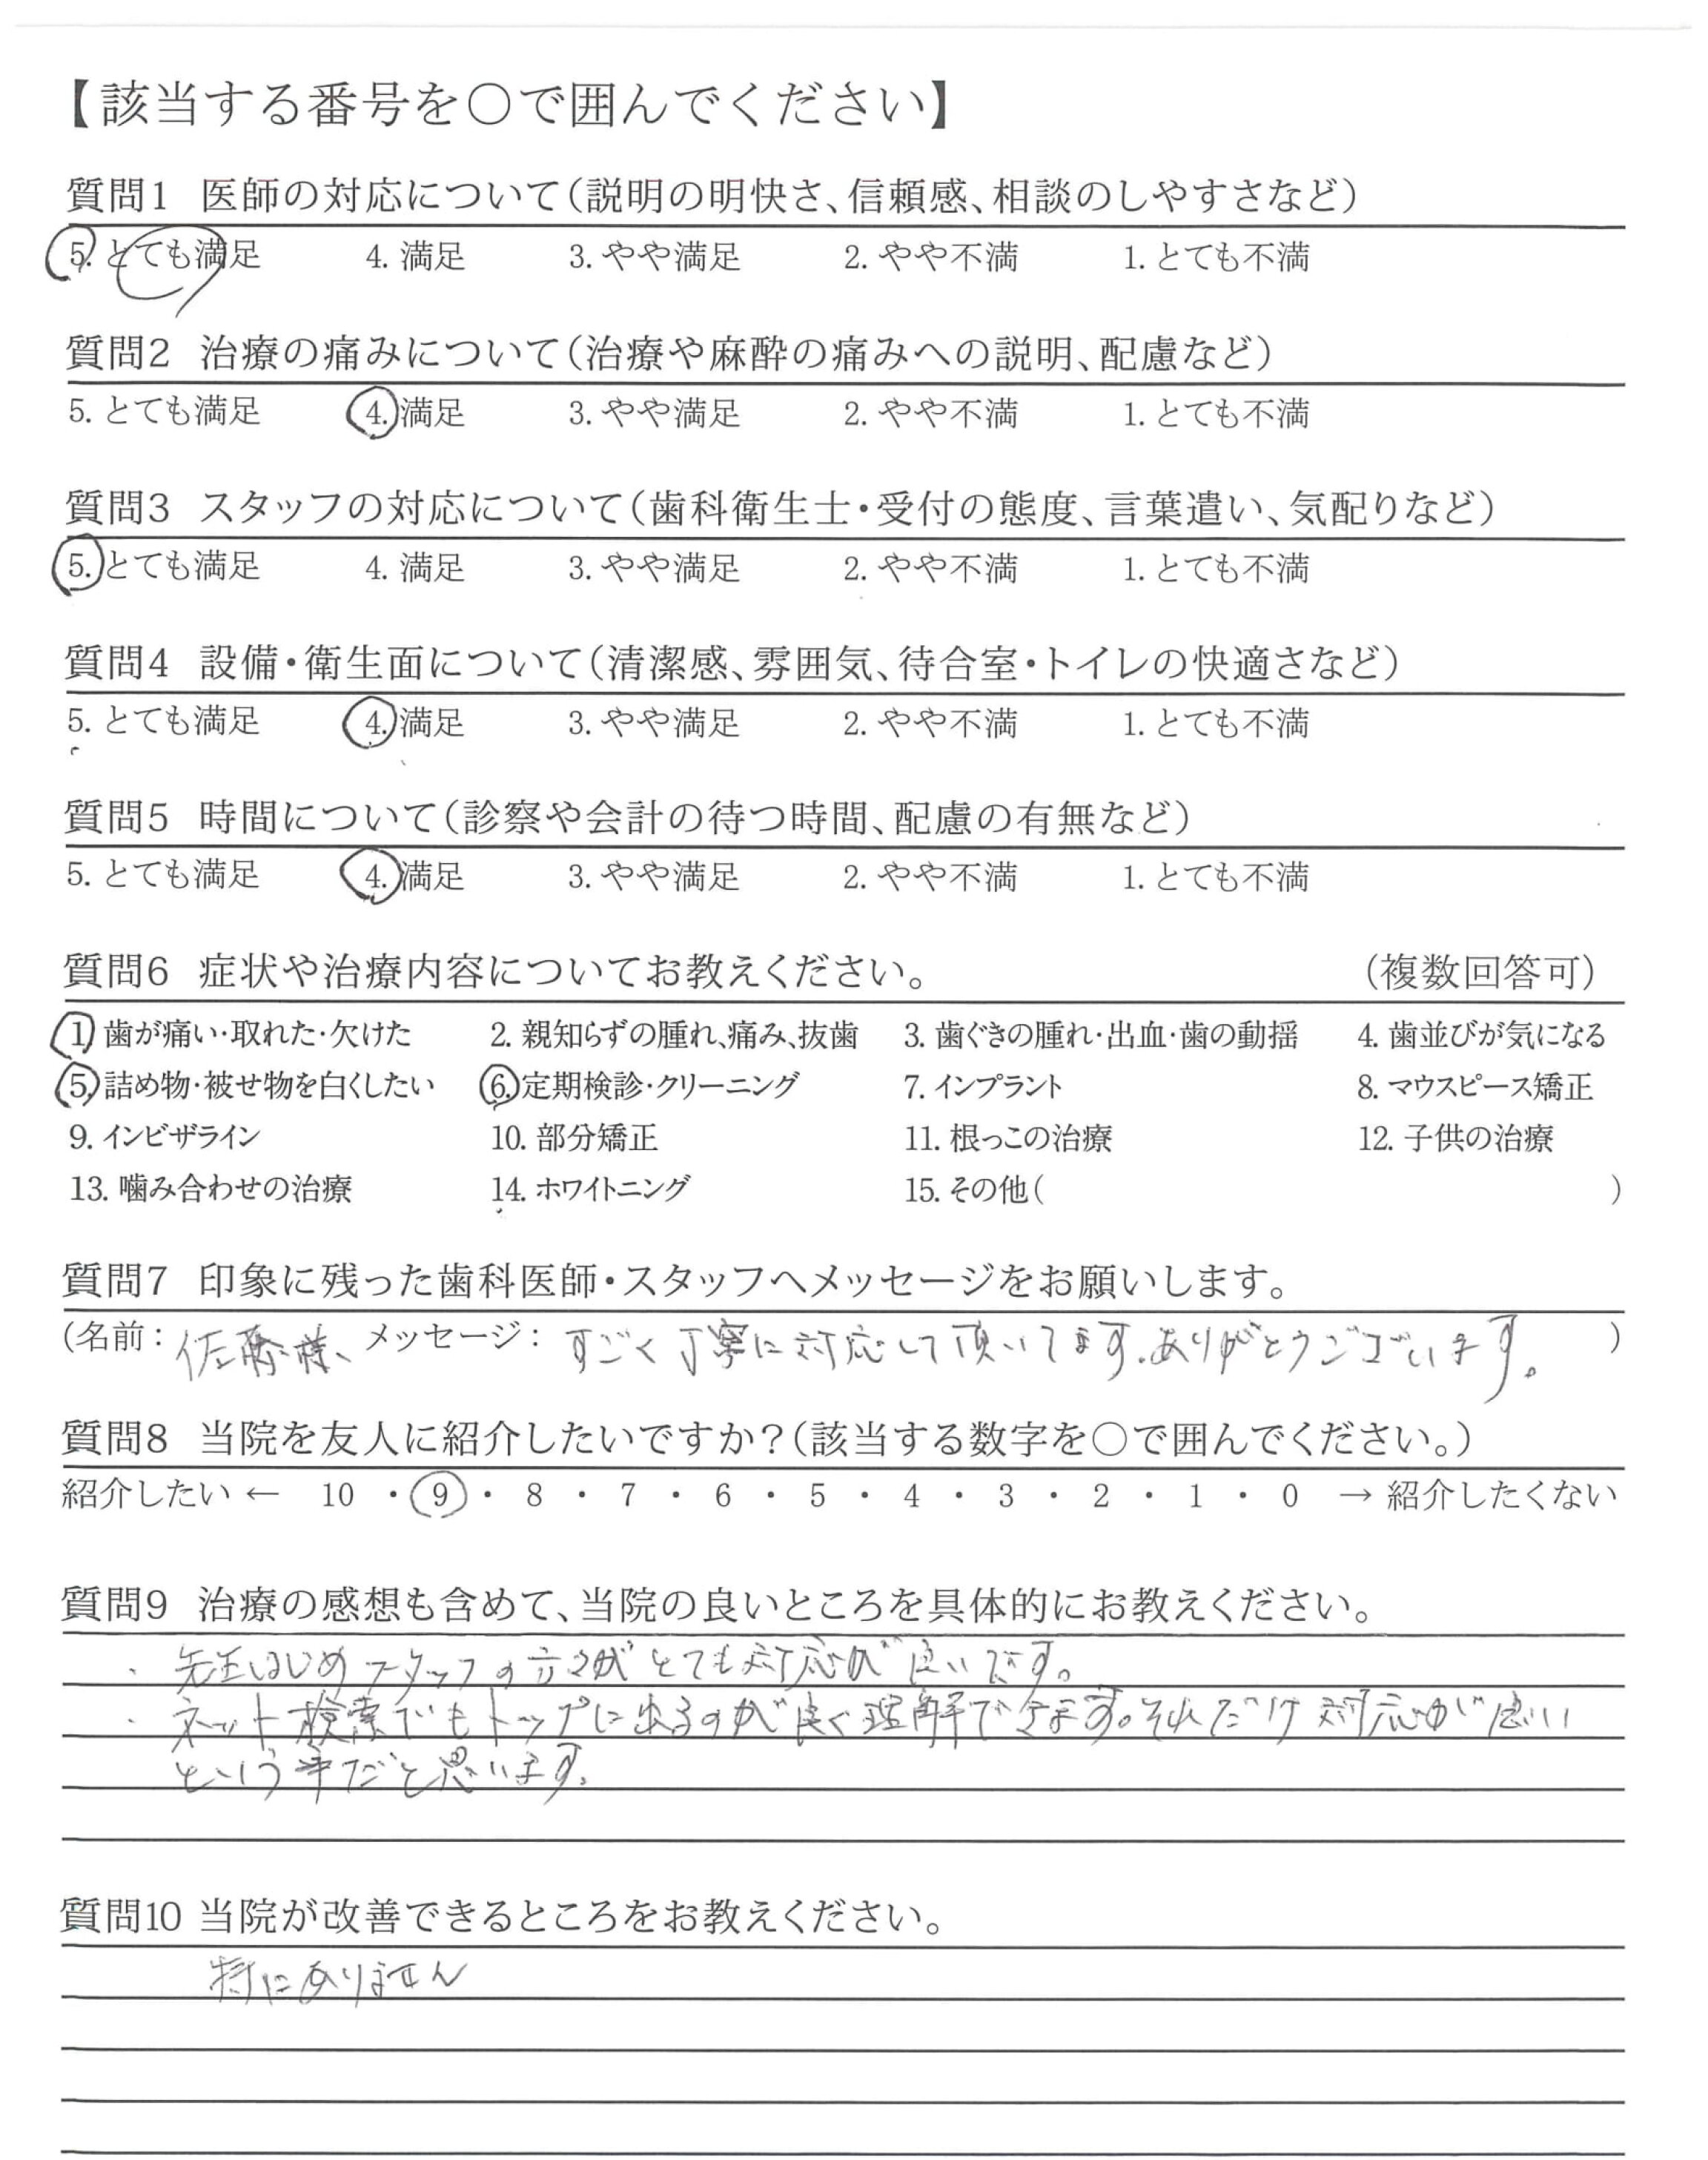 【該当する番号を〇で囲んでください】
質問1 医師の対応について(説明の明快さ、信頼感、相談のしやすさなど)
5. とても満足 4. 満足 3. やや満足 2. やや不満 1. とても不満
質問2 治療の痛みについて(治療や麻酔の痛みへの説明、配慮など)
5. とても満足 4. 満足 3. やや満足 2. やや不満 1. とても不満
質問3 スタッフの対応について(歯科衛生士・受付の態度、言葉遣い、気配りなど)
5. とても満足 4. 満足 3. やや満足 2. やや不満 1. とても不満
質問4 設備・衛生面について(清潔感、雰囲気、待合室・トイレの快適さなど)
5. とても満足 4. 満足 3. やや満足 2. やや不満 1. とても不満
質問5 時間について(診察や会計の待つ時間、配慮の有無など)
5. とても満足 4. 満足 3. やや満足 2. やや不満 1. とても不満
質問6 症状や治療内容についてお教えください。 (複数回答可)
1. 歯が痛い・取れた・欠けた 2. 親知らずの腫れ、痛み、抜歯 3. 歯ぐきの腫れ・出血・歯の動揺 4. 歯並びが気になる
5. 詰め物・被せ物を白くしたい 6. 定期検診・クリーニング 7. インプラント 8. マウスピース矯正
9. インビザライン 10. 部分矯正 11. 根っこの治療 12. 子供の治療
13. 噛み合わせの治療 14. ホワイトニング 15. その他( )
質問7 印象に残った歯科医師・スタッフへメッセージをお願いします。
(名前: 佐藤様、 メッセージ: すごく丁寧に対応して頂いてます。ありがとうございます。 )
質問8 当院を友人に紹介したいですか?(該当する数字を〇で囲んでください。)
紹介したい ← 10 ・ 9 ・ 8 ・ 7 ・ 6 ・ 5 ・ 4 ・ 3 ・ 2 ・ 1 ・ 0 → 紹介したくない
質問9 治療の感想も含めて、当院の良いところを具体的にお教えください。
・ 先生はじめスタッフの方々がとても対応が良いです。
・ ネット検索でもトップに出るのが良く理解できます。それだけ対応が良い
という事だと思います。
質問10 当院が改善できるところをお教えください。
特にありません